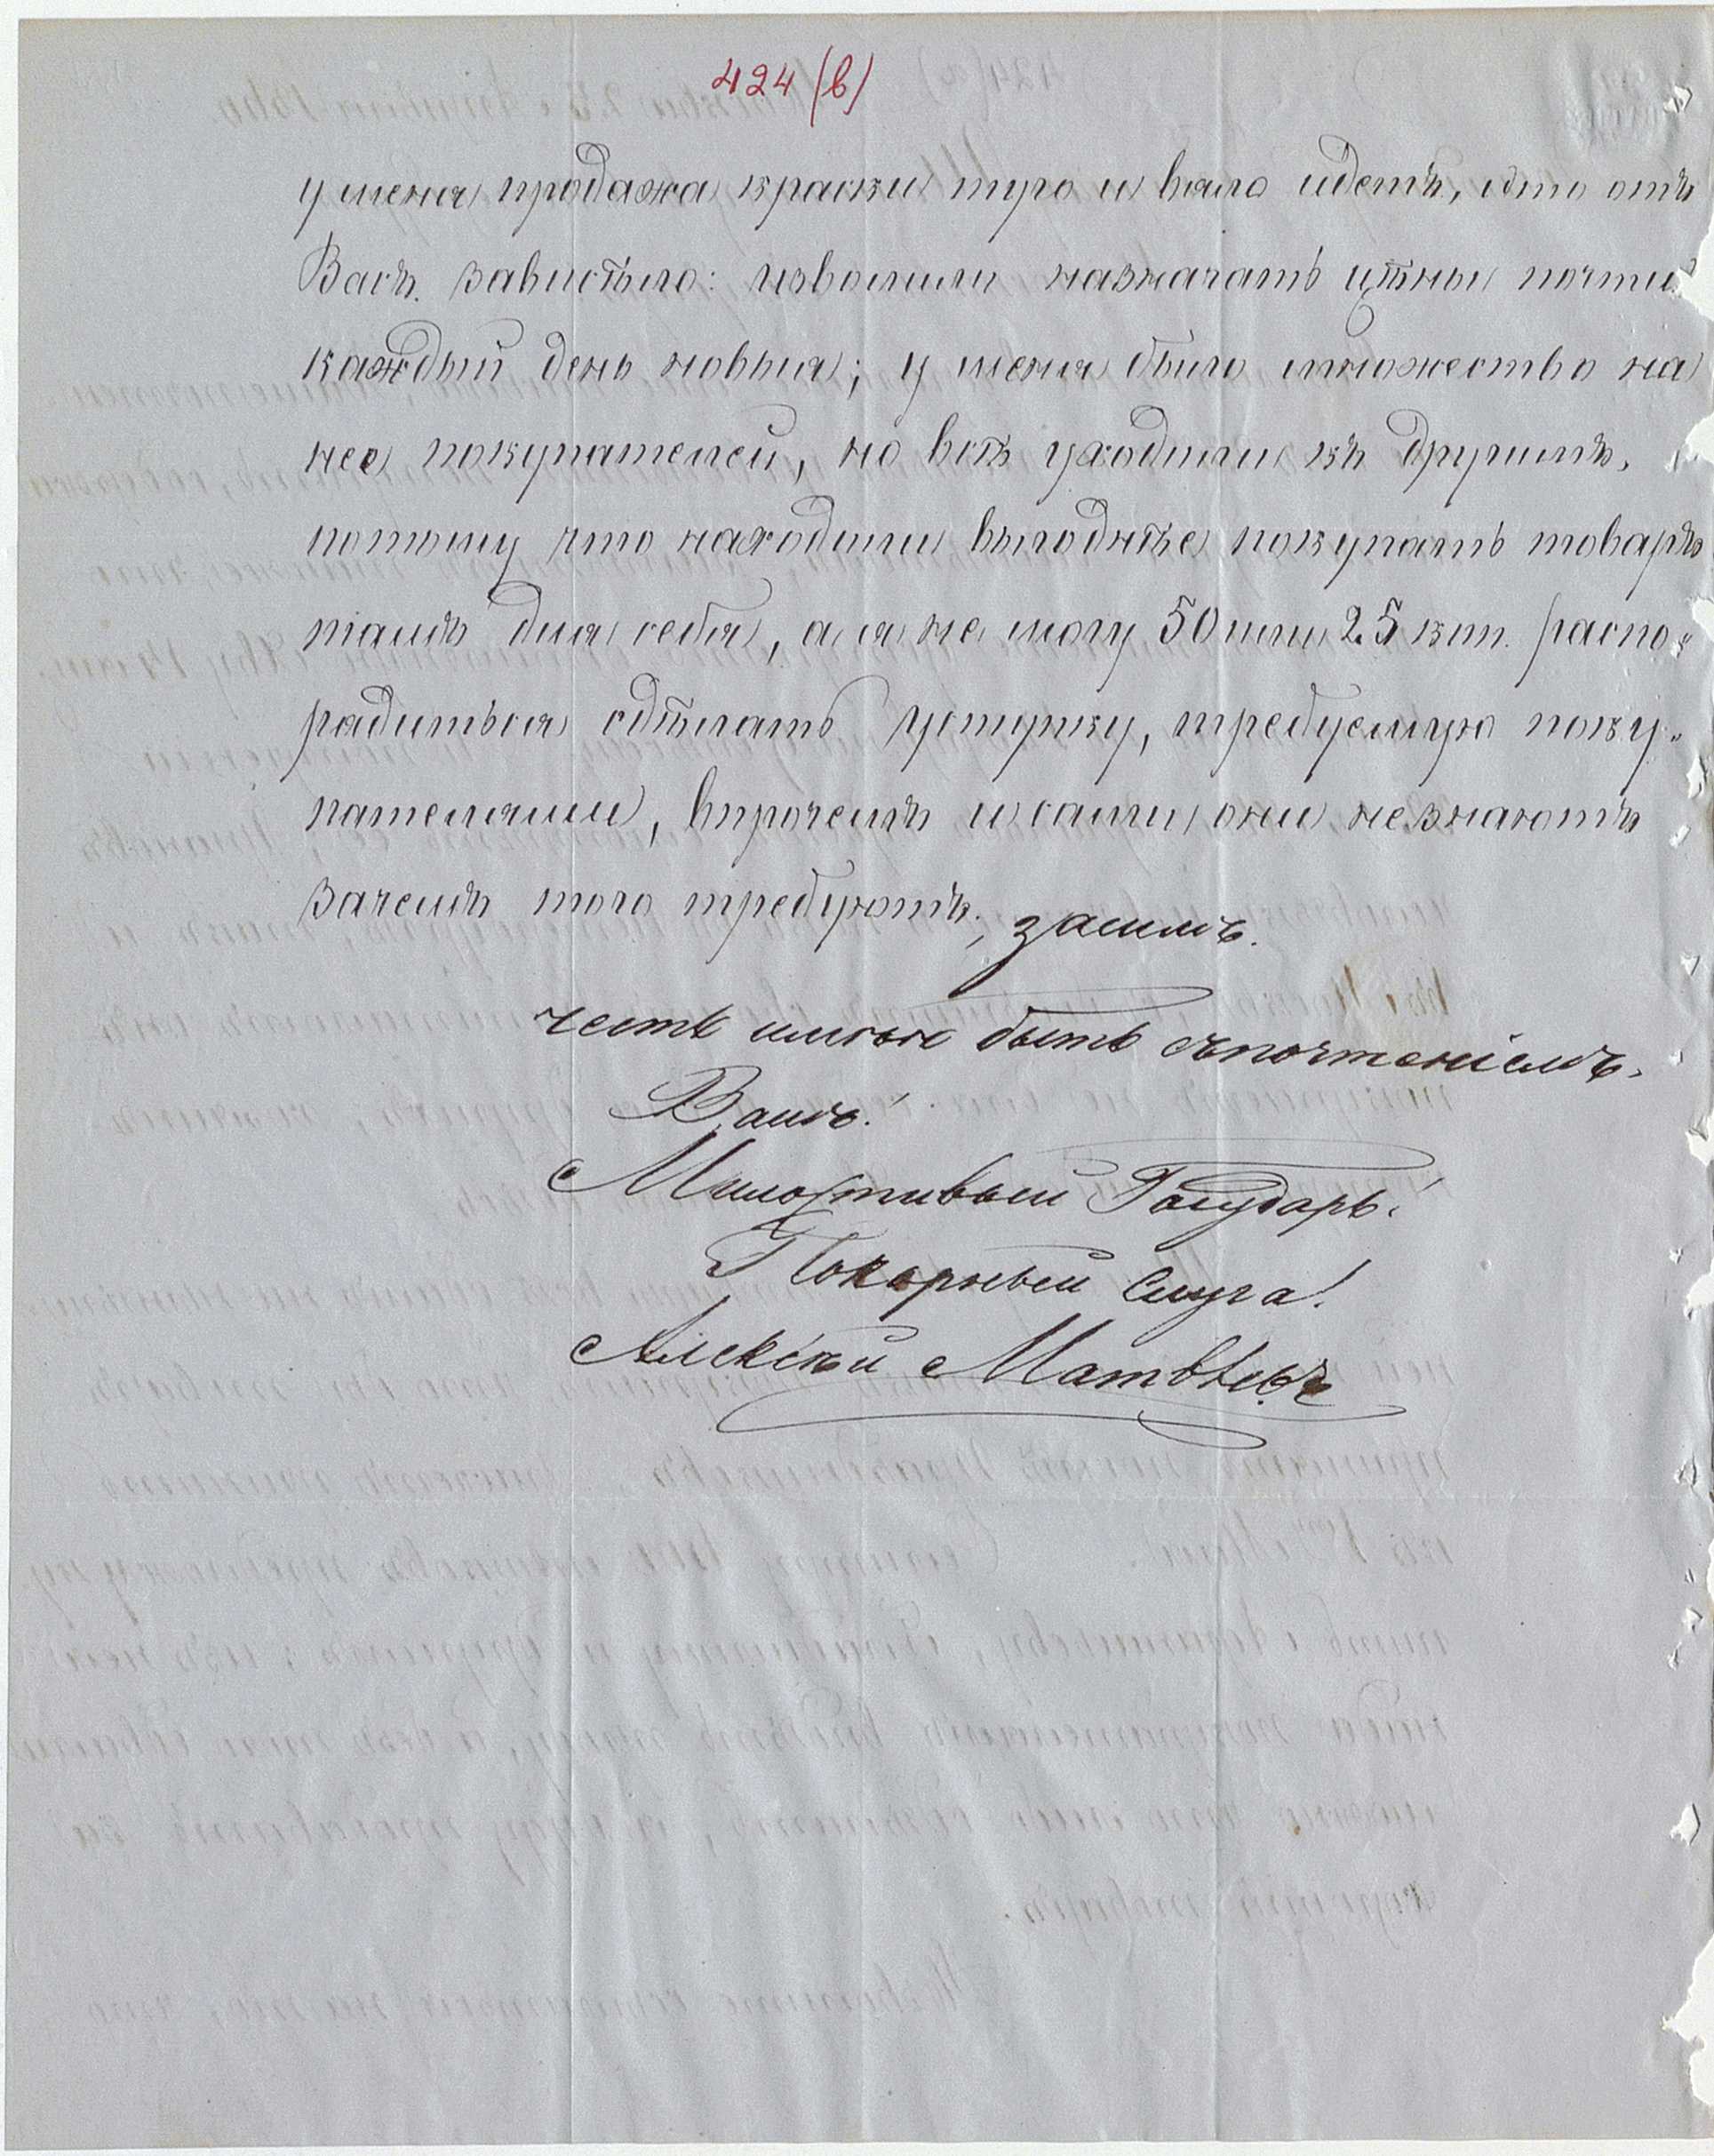 424 (в)
у меня продажа краски туго и вяло идетъ, это отъ
Васъ зависѣло: изволили назначать цѣны почти
каждый день новыя; у меня было множество на
нее покупателей, но всѣ уходили къ другимъ,
потому что находили выгоднѣе покупать товаръ
тамъ для себя, а я не могу 50 или 25 коп. распо-
радиться сдѣлать уступку, требуемую поку-
пателями, впрочемъ и сами они не знаютъ
зачемъ того требуютъ; засимъ.
честь имѣю быть съ почтеніемъ.
Вамъ!
Милостивый Государь!
Покорный Слуга!
Алексѣй Матвѣевъ